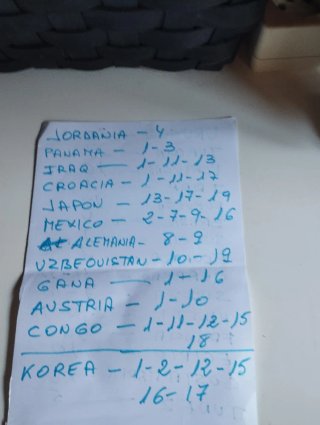 JORDANIA - 4
PANAMA - 1-3
IRAQ - 1-11-13
CROACIA - 1-11-17
JAPON - 13-17-19
MEXICO - 2-7-9-16
ALEMANIA - 8-9
UZBEQUISTAN - 10 - 19
GANA - 1-16
AUSTRIA - 1-10
CONGO - 1-11-12-15
18
KOREA - 1-2-12-15
16-17